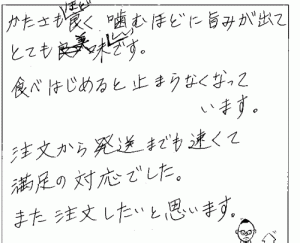 かたさもほどよく 噛むほどに旨みが出て
とても美味しいです。
食べはじめると止まらなくなって
います。
注文から発送までも速くて
満足の対応でした。
また注文したいと思います。